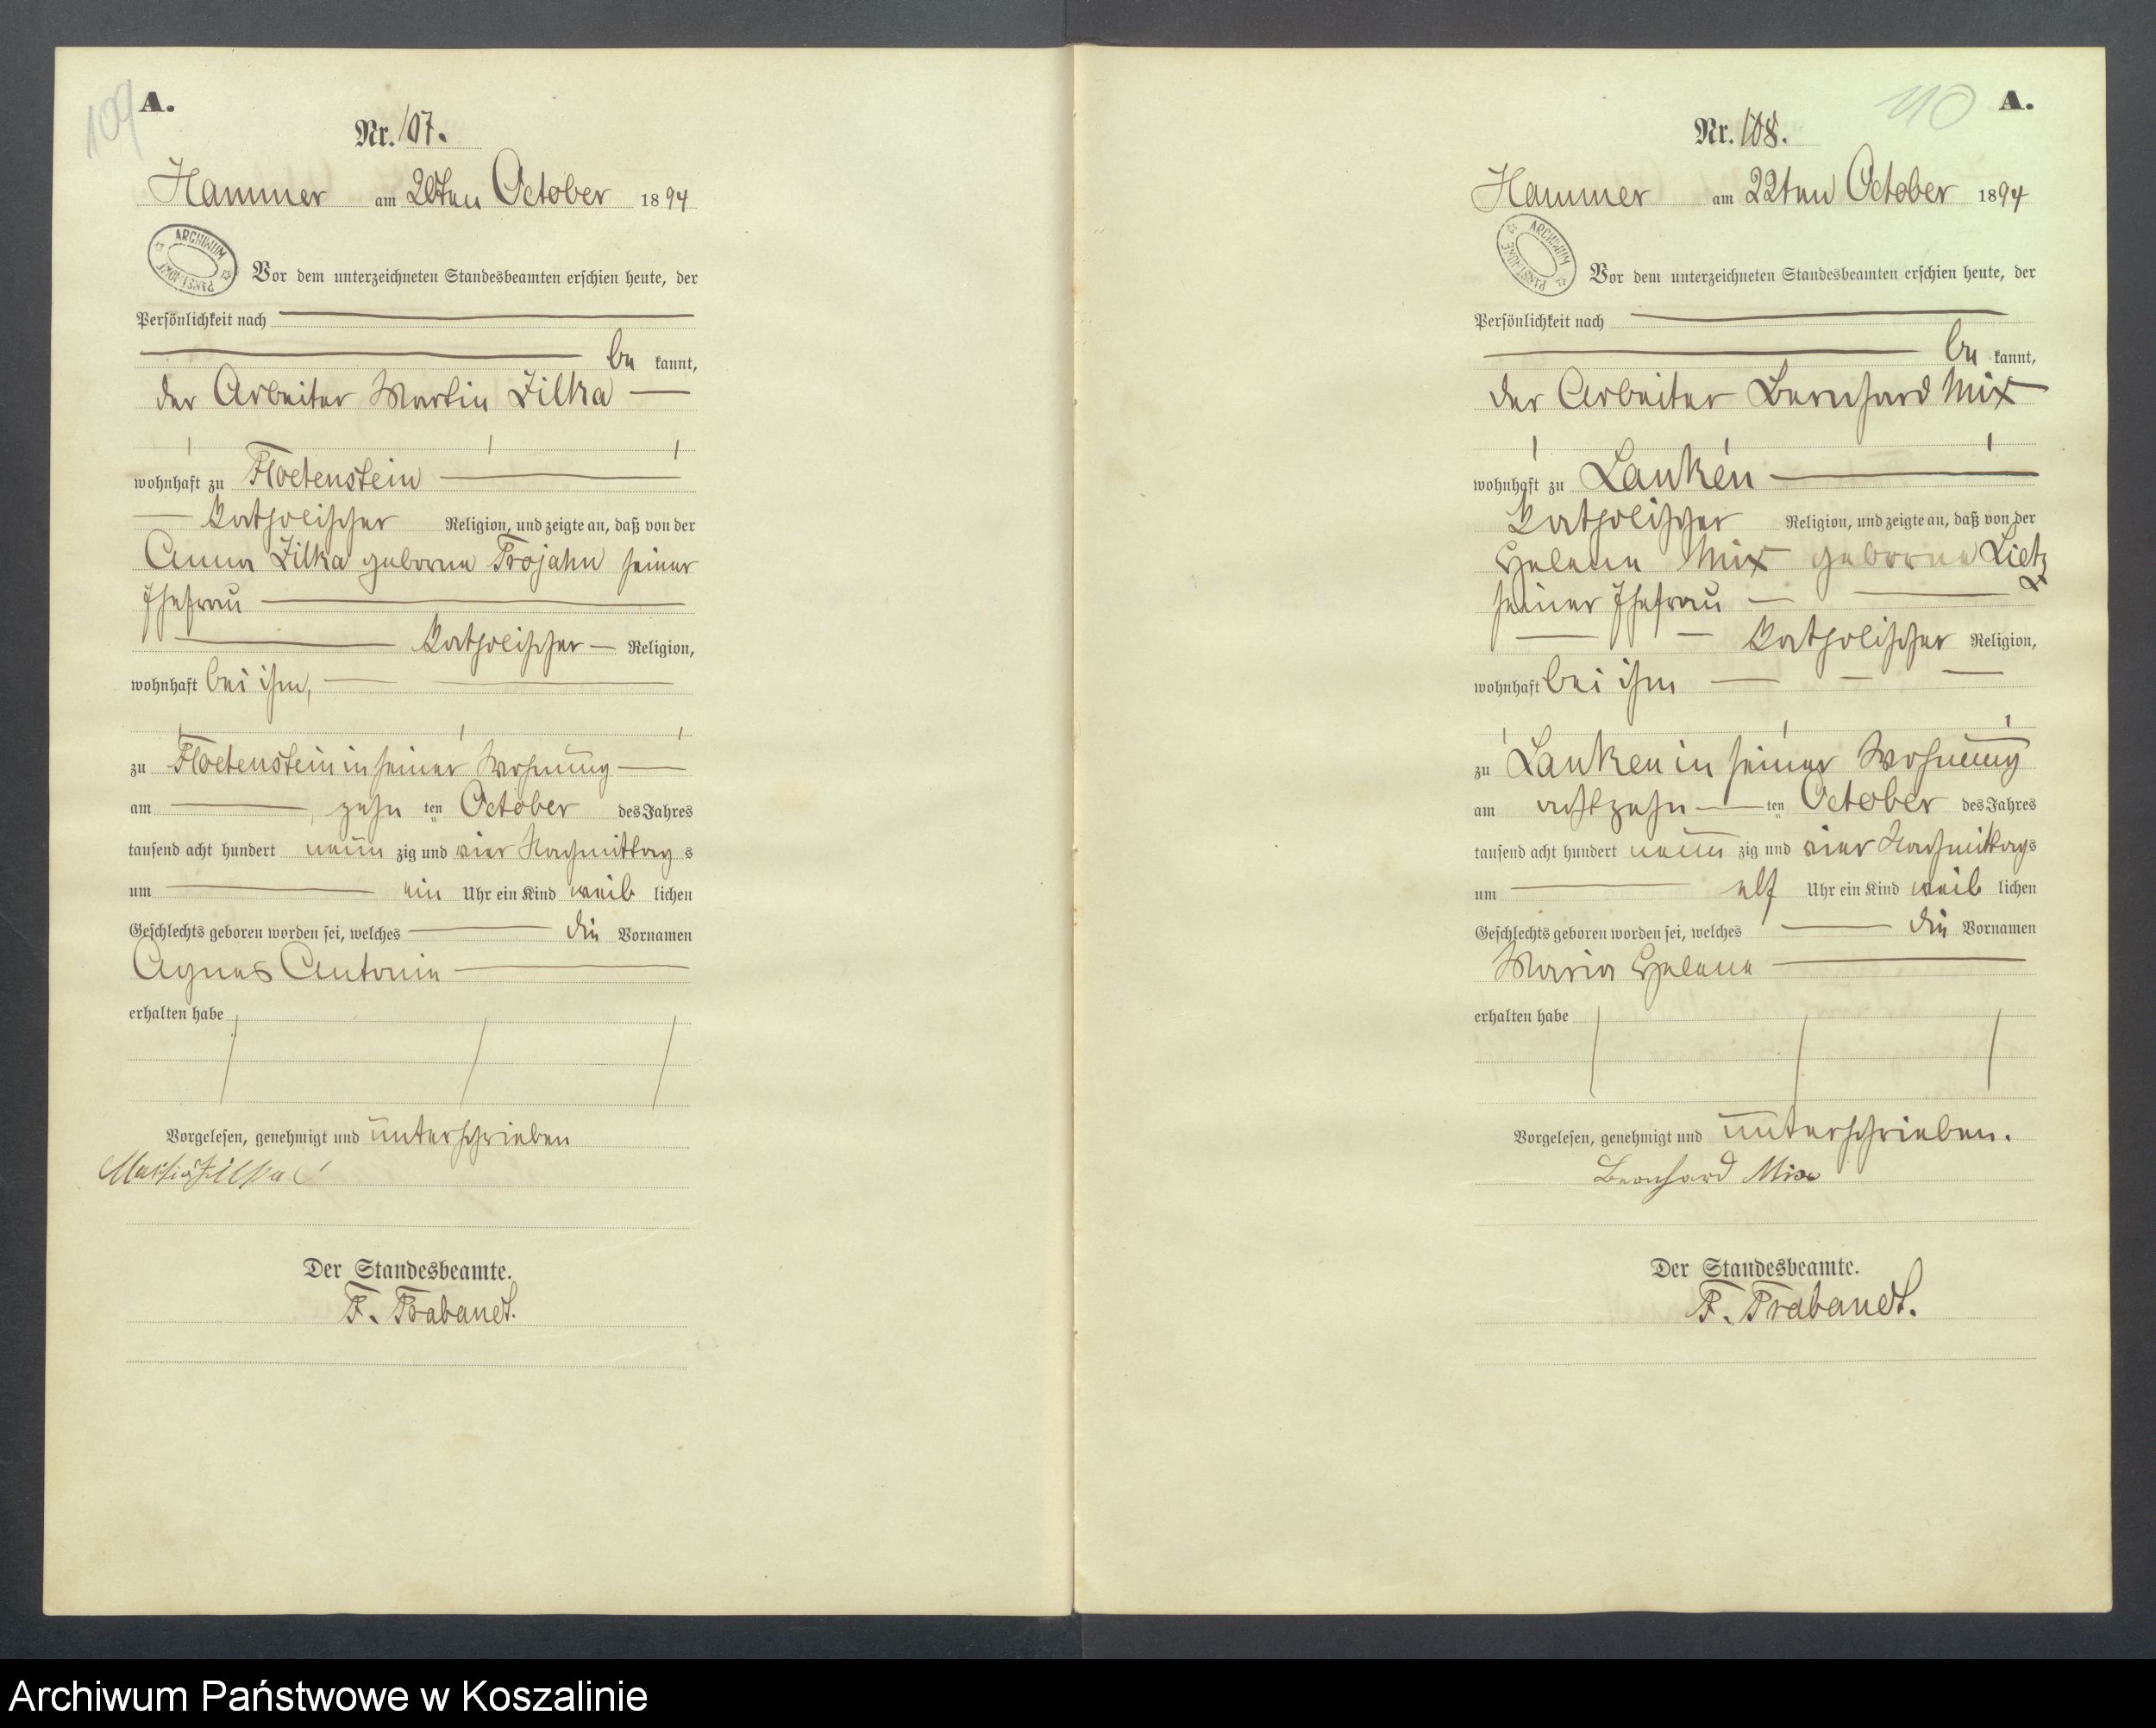 109
A.
Nr. 107.
Hammer am 20ten October 1894
ARCHIWUM PAŃSTWOWE
Vor dem unterzeichneten Standesbeamten erschien heute, der
Persönlichkeit nach
be kannt,
der Arbeiter Martin Zilka
wohnhaft zu Floetenstein
katholischer Religion, und zeigte an, daß von der
Anna Zilka geborne Trojahn seiner
Ehefrau
katholischer Religion,
wohnhaft bei ihm,
zu Floetenstein in seiner Wohnung
am zehn ten October des Jahres
tausend acht hundert neun zig und vier Nachmittag s
um ein Uhr ein Kind weib lichen
Geschlechts geboren worden sei, welches die Vornamen
Agnes Antonie
erhalten habe
Vorgelesen, genehmigt und unterschrieben
Martin Zilka
Der Standesbeamte.
F. Trabandt.
110
A.
Nr. 108.
Hammer am 22ten October 1894
ARCHIWUM PAŃSTWOWE
Vor dem unterzeichneten Standesbeamten erschien heute, der
Persönlichkeit nach
be kannt,
der Arbeiter Bernhard Mix
wohnhaft zu Lanken
katholischer Religion, und zeigte an, daß von der
Helene Mix geborne Lietz
seiner Ehefrau
katholischer Religion,
wohnhaft bei ihm
zu Lanken in seiner Wohnung
am achtzehn ten October des Jahres
tausend acht hundert neun zig und vier Nachmittags
um elf Uhr ein Kind weib lichen
Geschlechts geboren worden sei, welches die Vornamen
Maria Helene
erhalten habe
Vorgelesen, genehmigt und unterschrieben.
Bernhard Mix
Der Standesbeamte.
F. Trabandt.
Archiwum Państwowe w Koszalinie